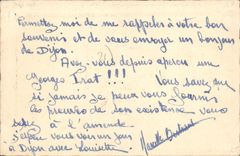 Permettez moi de me rappeler à votre bon
souvenir et de vous envoyer un bonjour
de Dijon.
Avez-vous depuis aperçu un
Gongo Prat !!!
Vous savez que
si jamais je peux vous fournir
les preuves de son existence vous
serez à l'amende
J'espère vous voir un jour
à Dijon avec Louisette